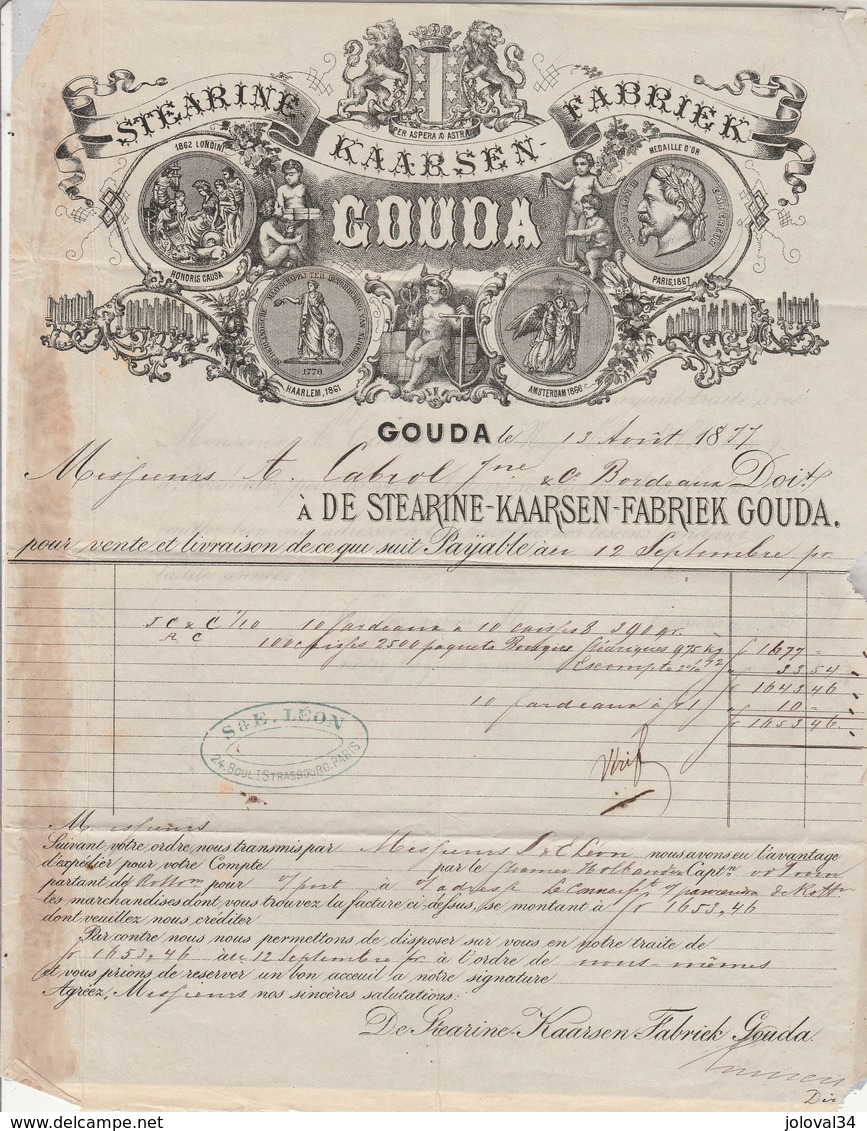 PER ASPERA AD ASTRA
STEARINE KAARSEN-FABRIEK
GOUDA
1862 LONDINI
HONORIS CAUSA
MEDAILLE D'OR
NAPOLEON III EMPEREUR
PARIS, 1867
NEDERLANDSCHE MAATSCHAPPIJ TER BEVORDERING VAN NIJVERHEID
1778
HAARLEM, 1861
AMSTERDAM 1866
GOUDA le 13 Août 1877
Messieurs A. Cabrol Jne & Co Bordeaux Doit
à DE STEARINE-KAARSEN-FABRIEK GOUDA.
pour vente et livraison de ce qui suit Payable au 12 Septembre pr.
J C & C 1/10 10 fardeaux à 10 caisses 390 gr.
A C 100 caisses 2500 paquets Bougies 975 kg f 1677 -
Escompte 2% " 33 54
f 1643 46
10 fardeaux à f 1 " 10 -
f 1653 46
S & E. LÉON
24, BOUL! STRASBOURG, PARIS
Messieurs
Suivant votre ordre nous transmis par Messieurs S & E Léon nous avons eu l'avantage
d'expédier pour votre Compte par le Steamer Hollandia Captn
partant de Rottm pour v/port à v/adresse
les marchandises dont vous trouvez la facture ci-dessus, se montant à fr 1653,46
dont veuillez nous créditer
Par contre nous nous permettons de disposer sur vous en notre traite de
fr 1653,46 au 12 Septembre pr à l'ordre de nous-mêmes
et vous prions de reserver un bon acceuil a notre signature
Agréez, Messieurs nos sincères salutations:
De Stearine-Kaarsen-Fabriek Gouda.
Dir
joloval34